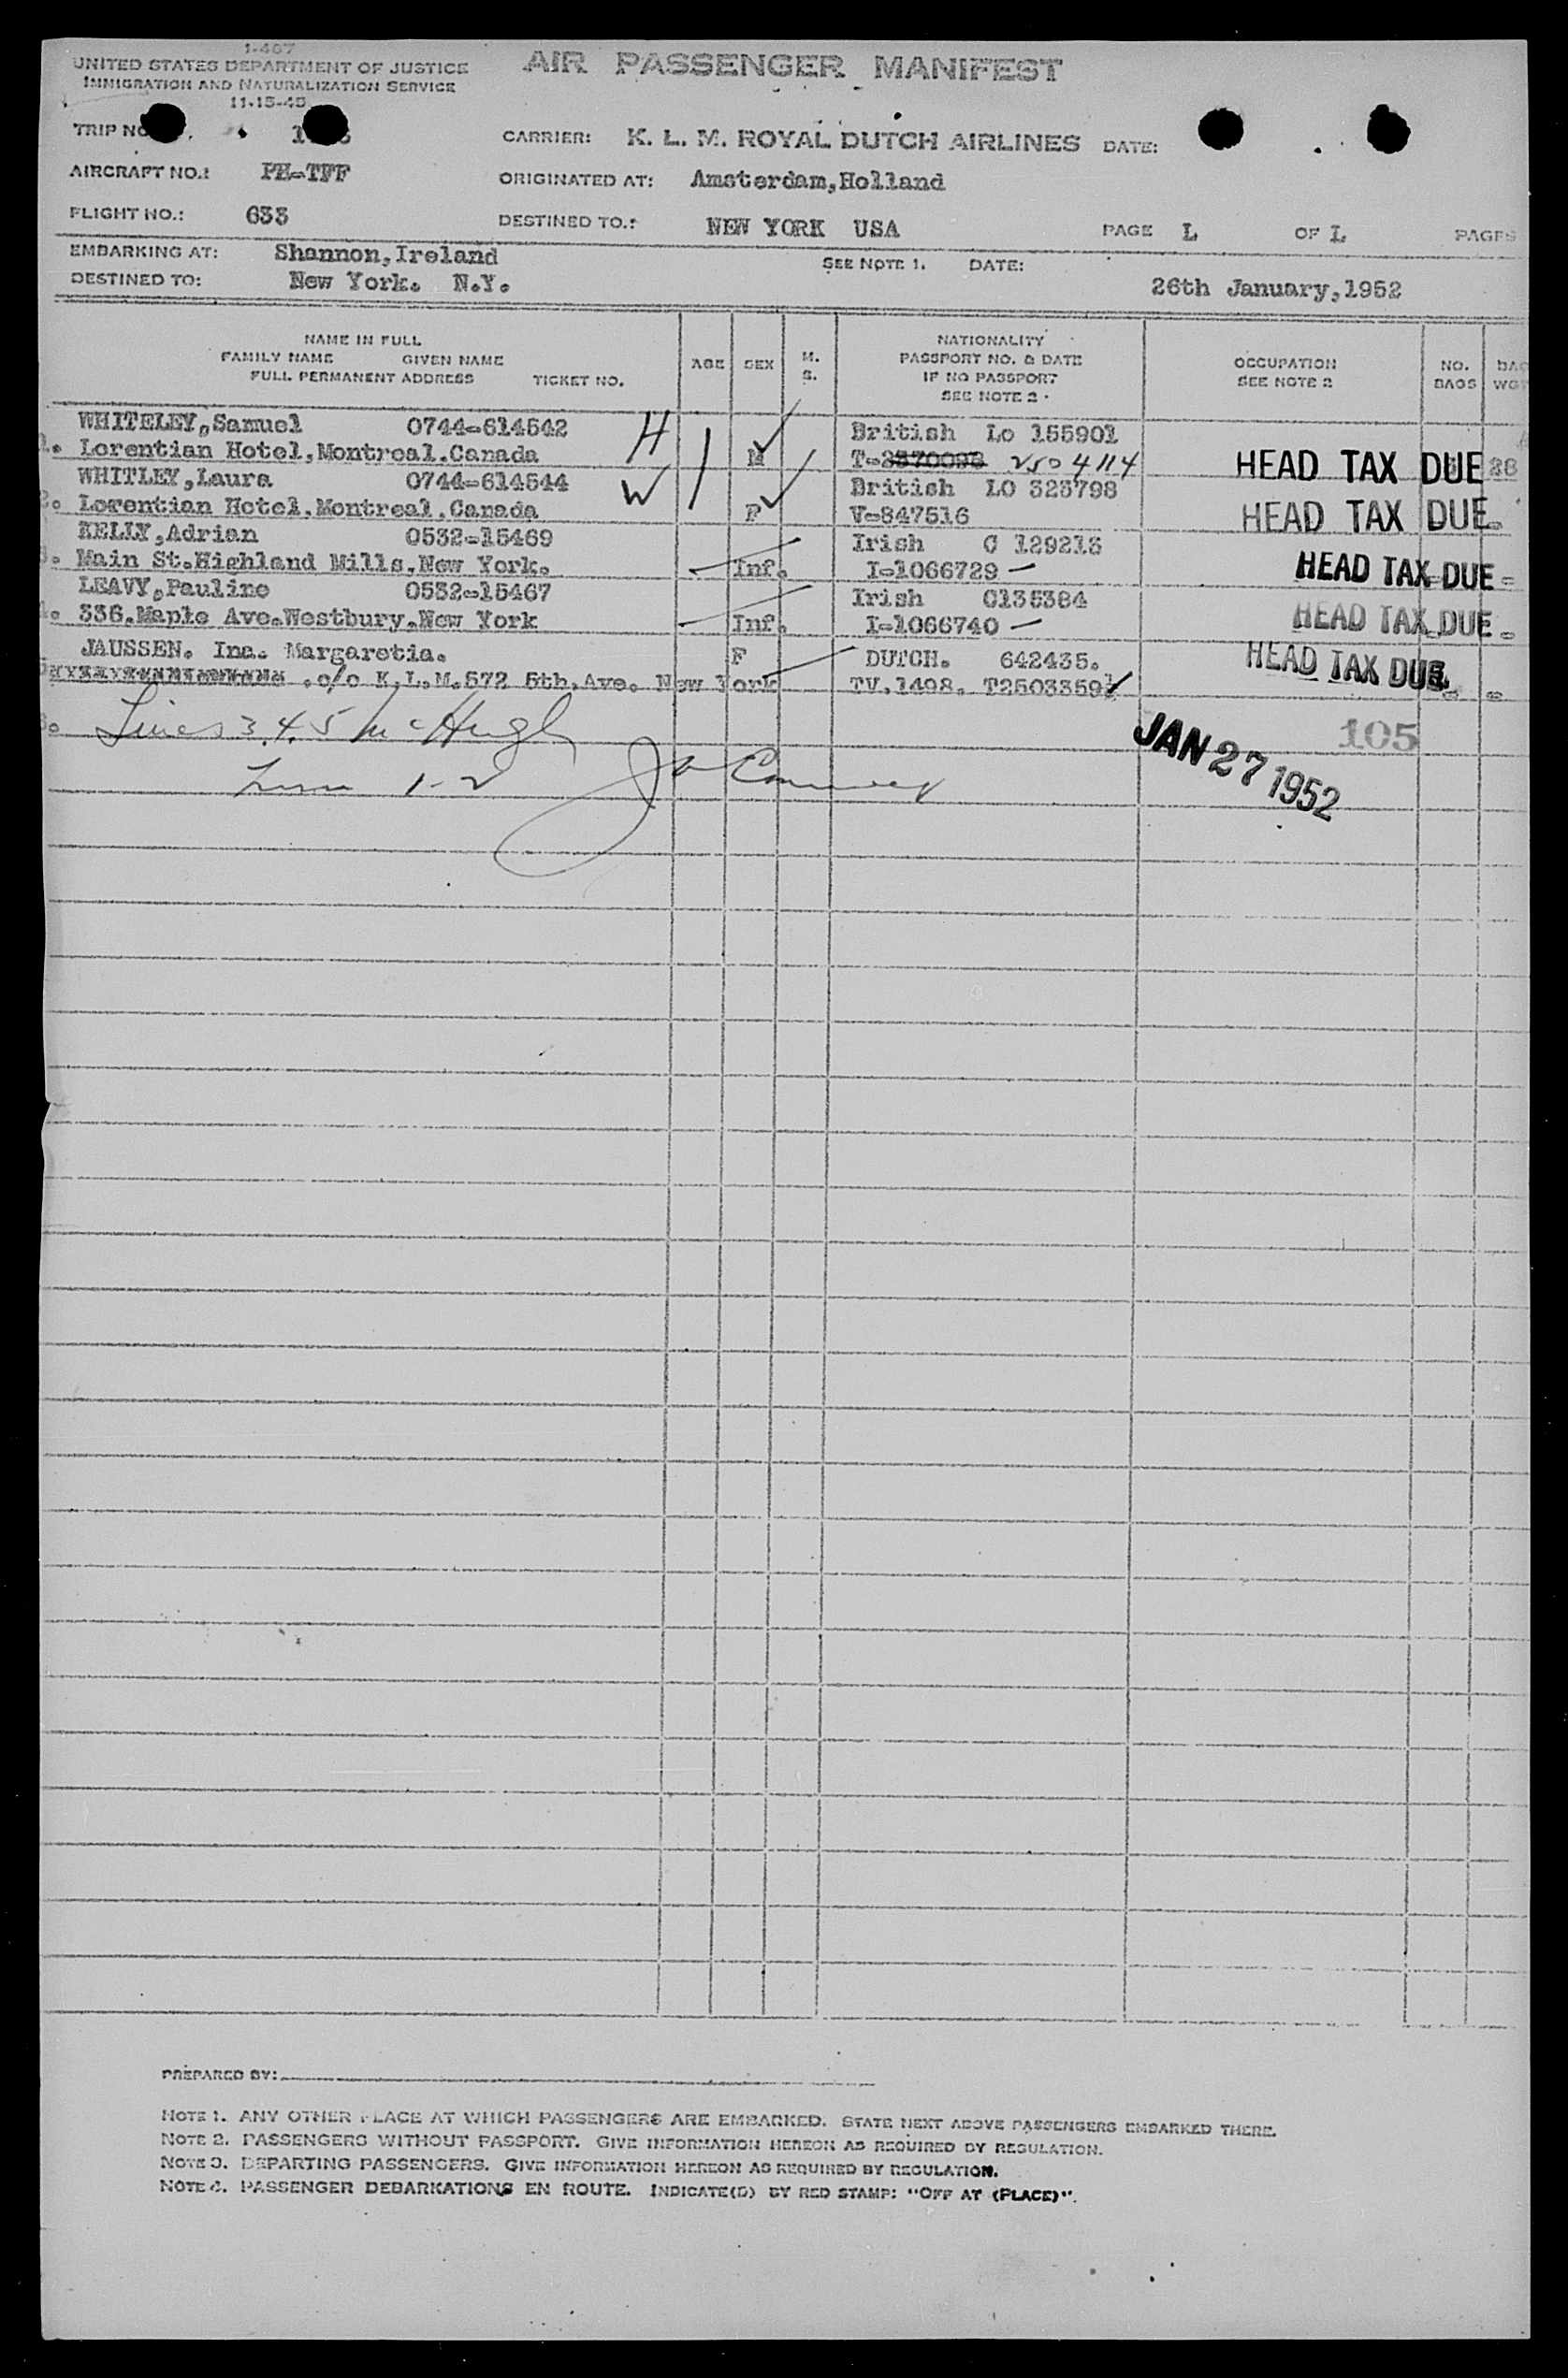 1-467
UNITED STATES DEPARTMENT OF JUSTICE
IMMIGRATION AND NATURALIZATION SERVICE
11-15-45
AIR PASSENGER MANIFEST
TRIP NO
CARRIER: K. L. M. ROYAL DUTCH AIRLINES DATE:
AIRCRAFT NO.: PH-TFF
ORIGINATED AT: Amsterdam,Holland
FLIGHT NO.: 633
DESTINED TO.: NEW YORK USA PAGE L OF L PAGES
EMBARKING AT: Shannon,Ireland
SEE NOTE 1. DATE: 26th January,1952
DESTINED TO: New York. N.Y.
NAME IN FULL
FAMILY NAME GIVEN NAME
FULL PERMANENT ADDRESS TICKET NO.
AGE
SEX
M.
S.
NATIONALITY
PASSPORT NO. & DATE
IF NO PASSPORT
SEE NOTE 2
OCCUPATION
SEE NOTE 2
NO.
BAGS
WHITELEY,Samuel 0744-614542 H British Lo 155901
1. Lorentian Hotel.Montreal.Canada M T-2370098 2504114 HEAD TAX DUE 28
WHITLEY,Laura 0744-614544 W British LO 323798
2. Lorentian Hotel.Montreal.Canada F V-847516 HEAD TAX DUE
KELLY,Adrian 0532-15469 Irish C 129213
3. Main St.Highland Mills.New York. Inf. I-1066729 HEAD TAX DUE
LEAVY,Pauline 0532-15467 Irish C135384
4. 336.Maple Ave.Westbury.New York Inf. I-1066740 HEAD TAX DUE
JAUSSEN. Ina. Margaretia. F DUTCH. 642435.
5. .c/o K.L.M.572 5th.Ave. New York TV.1498. T2503359 HEAD TAX DUE
6. Lines 3.4.5 McHugh 105
JAN 27 1952
1-2
PREPARED BY:
NOTE 1. ANY OTHER PLACE AT WHICH PASSENGERS ARE EMBARKED. STATE NEXT ABOVE PASSENGERS EMBARKED THERE.
NOTE 2. PASSENGERS WITHOUT PASSPORT. GIVE INFORMATION HEREON AS REQUIRED BY REGULATION.
NOTE 3. DEPARTING PASSENGERS. GIVE INFORMATION HEREON AS REQUIRED BY REGULATION.
NOTE 4. PASSENGER DEBARKATIONS EN ROUTE. INDICATE(D) BY RED STAMP: "OFF AT (PLACE)".